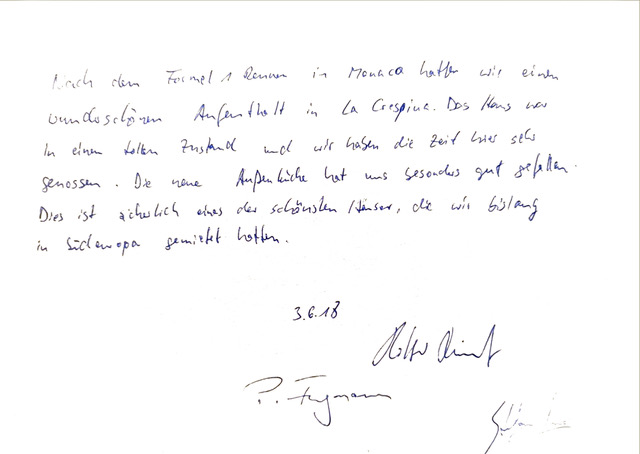 Nach dem Formel 1 Rennen in Monaco hatten wir einen
wunderschönen Aufenthalt in La Crespina. Das Haus war
in einem tollen Zustand und wir haben die Zeit hier sehr
genossen. Die neue Außenküche hat uns besonders gut gefallen.
Dies ist sicherlich eines der schönsten Häuser, die wir bislang
in Südeuropa gemietet hatten.
3.6.18
P.